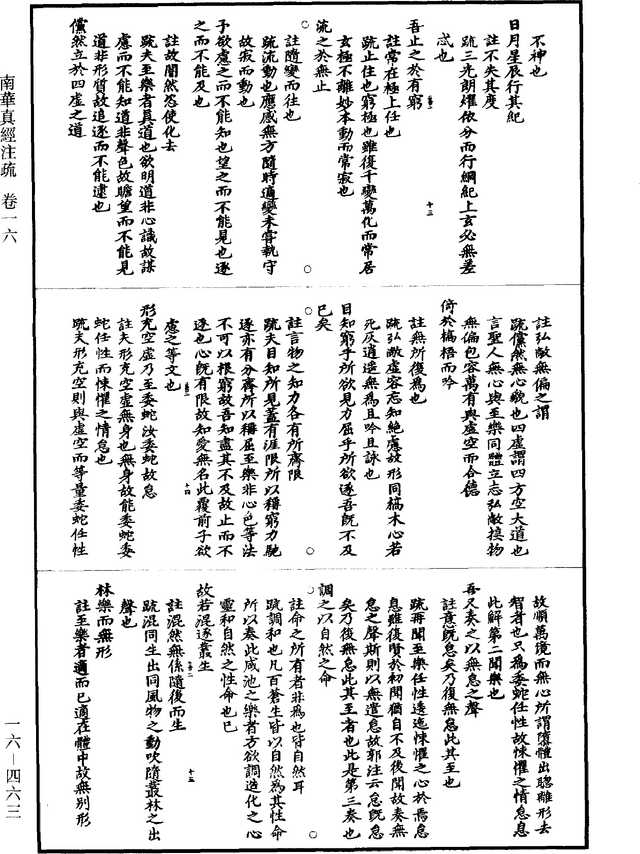 南華真經注疏　卷一六
不神也
日月星辰行其紀
註不失其度
疏三光朗耀依分而行綱紀上玄必無差
忒也
吾止之於有窮
十三
註常在極上住也
疏止住也窮極也雖復千變萬化而常居
玄極不離妙本動而常寂也
流之於無止
註隨變而往也
疏流動也應感無方隨時適變未嘗執守
故寂而動也
子欲慮之而不能知也望之而不能見也逐
之而不能及也
註故闇然恣使化去
疏夫至樂者真道也欲明道非心識故謀
慮而不能知道非聲色故瞻望而不能見
道非形質故追逐而不能逮也
儻然立於四虛之道
註弘敞無偏之謂
疏儻然無心貌也四虛謂四方空大道也
言聖人無心與至樂同體立志弘敞接物
無偏包容萬有與虛空而合德
倚於槁梧而吟
註無所復為也
疏弘敞虛容忘知絕慮故形同槁木心若
死灰逍遙無為且吟且詠也
目知窮乎所欲見力屈乎所欲逐吾既不及
已矣
註言物之知力各有所齊限
疏夫目知所見蓋有涯限所以稱窮力馳
逐亦有分齊所以稱屈至樂非心色等法
不可以根窮故吾知盡其不及故止而不
逐也心既有限故知愛無名此覆前子欲
十四
慮之等文也
形充空虛乃至委蛇汝委蛇故怠
註夫形充空虛無身也無身故能委蛇委
蛇任性而悚懼之情怠也
疏夫形充空則與虛空而等量委蛇任性
故順萬境而無心所謂隳體出聰離形去
智者也只為委蛇任性故悚懼之情怠息
此解第二聞樂也
吾又奏之以無怠之聲
註意既怠矣乃復無怠此其至也
疏再聞至樂任性逶迤悚懼之心於焉怠
息雖復賢於初聞猶自不及後聞故奏無
怠之聲斯則以無遣怠故郭注云怠既怠
矣乃復無怠此其至者也此是第三奏也
調之以自然之命
註命之所有者非為也皆自然耳
疏調和也凡百蒼生皆以自然為其性命
所以奏此咸池之樂者方欲調造化之心
靈和自然之性命也已
故若混逐叢生
註混然無係隨後而生
十五
疏混同生出同風物之動吹隨叢林之出
聲也
林樂而無形
註至樂者適而已適在體中故無別形
一六—四六三